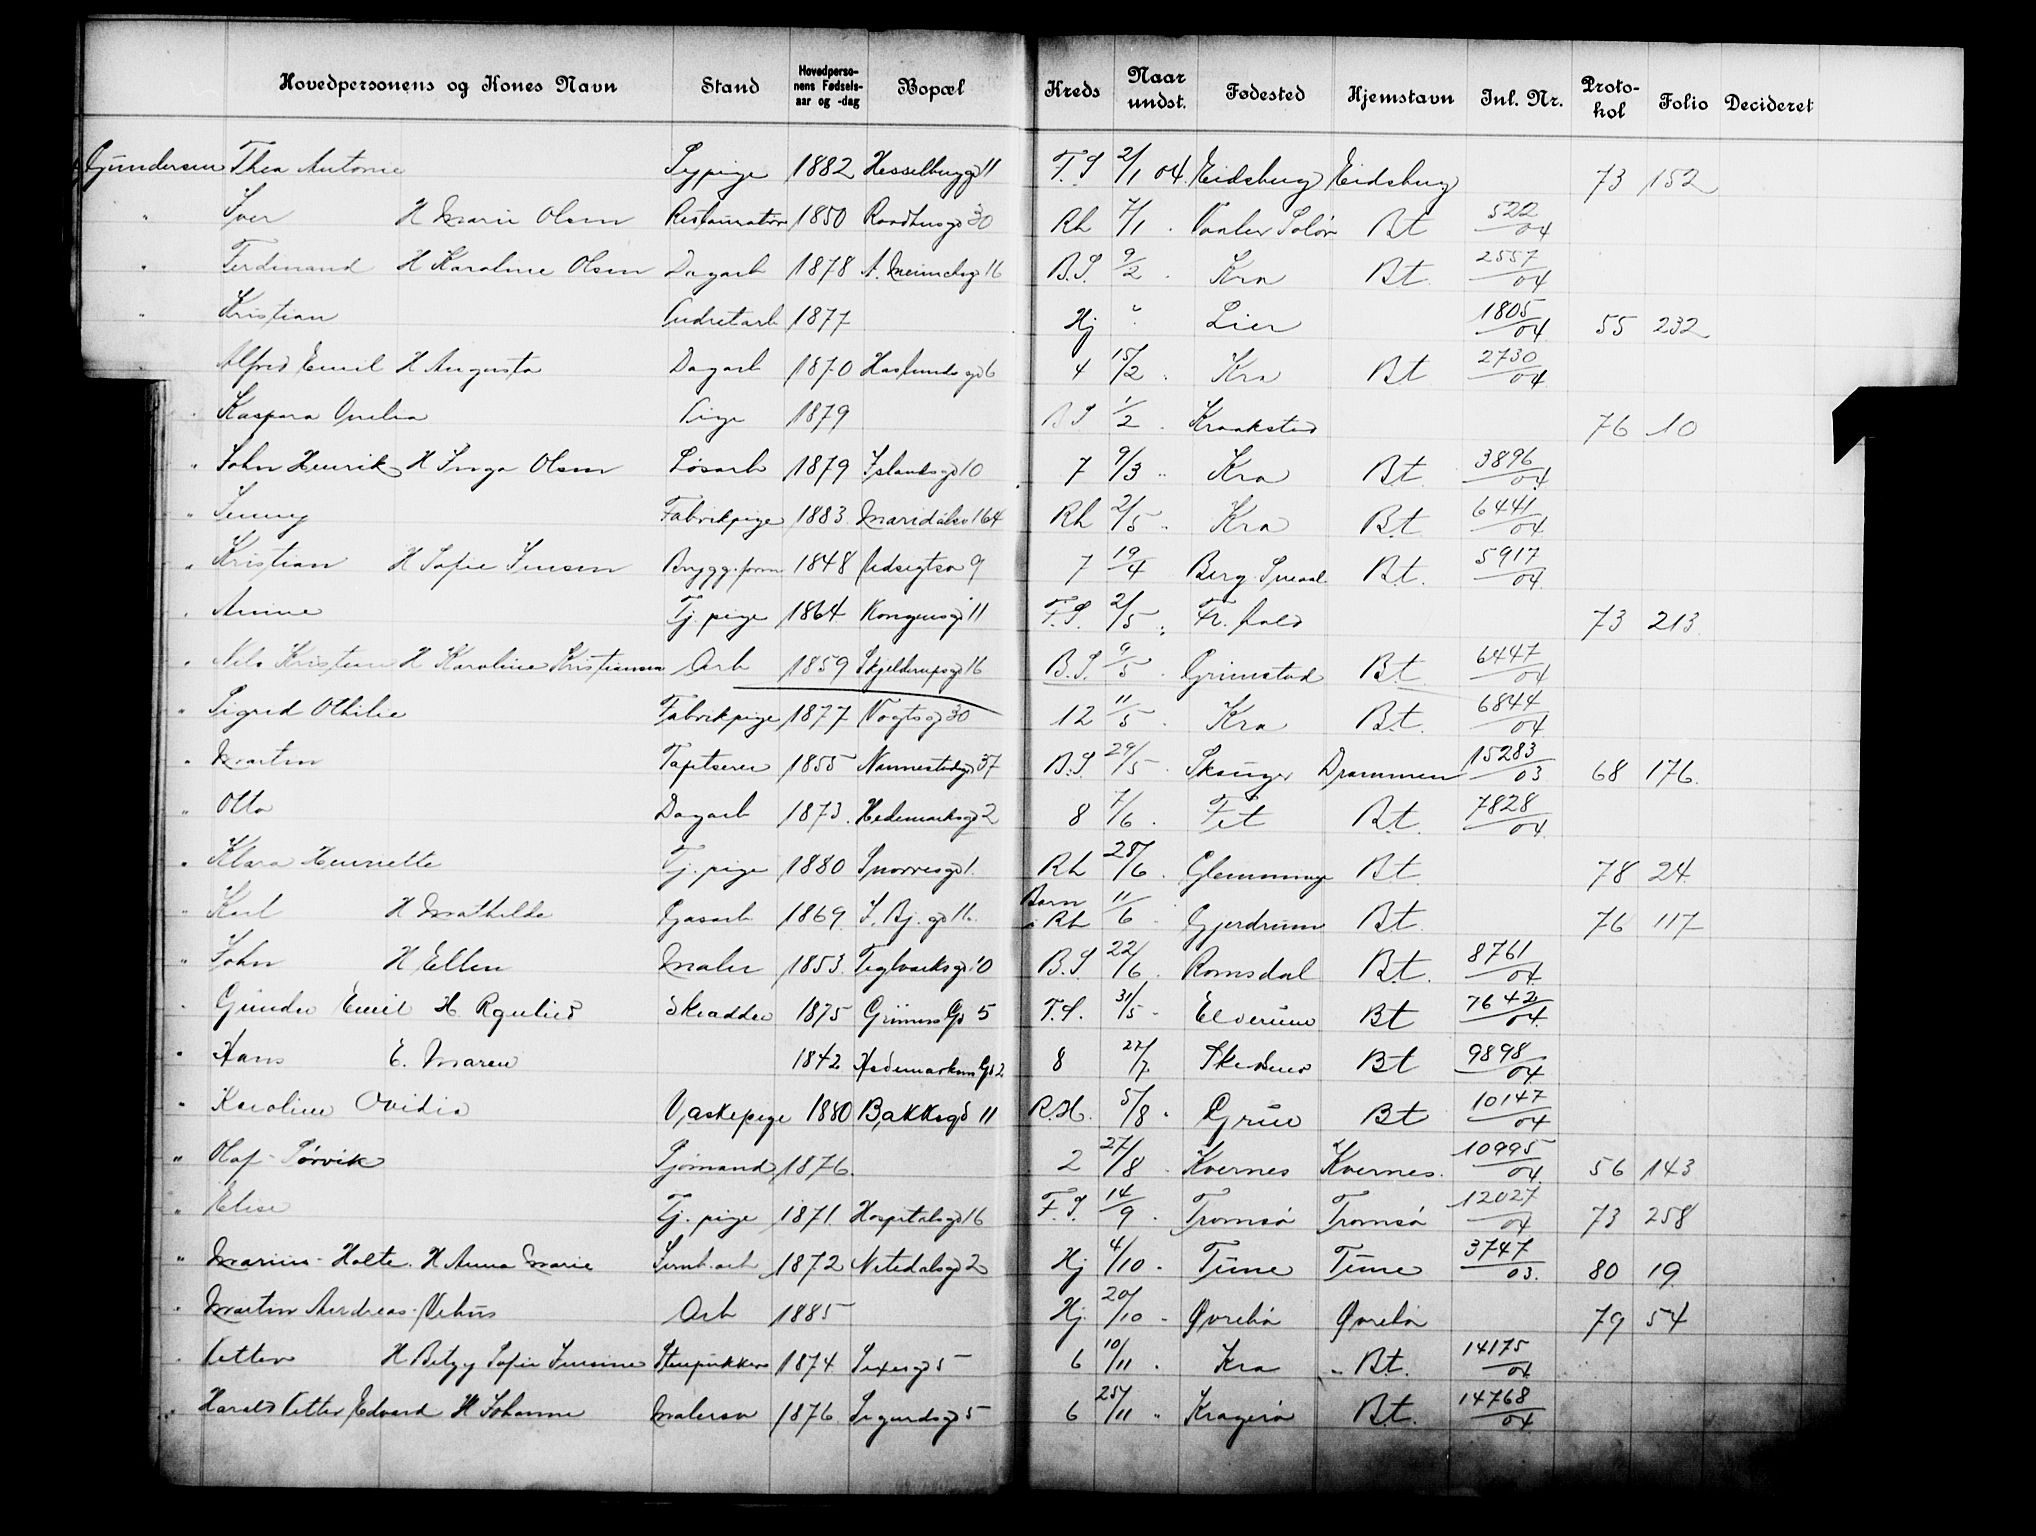 Hovedpersonens og Kones Navn Stand Hovedpersonens Fødselsaar og -dag Bopæl Kreds Naar undst. Fødested Hjemstavn Inl. Nr. Protokol Folio Decideret
Gundersen Thea Antonie Sypige 1882 Hesselbergg 11 F.S 2/1 04. Eidsberg Eidsberg 73 152
" Iver H Marie Olsen Restauratør 1850 Raadhusgd 30 Rh 7/1 . Vaaler Solør Bt 522/04
" Ferdinand H Karoline Olsen Dagarb 1878 A. Meinichsg 16 B.S. 9/2 . Kra Bt. 2557/04
" Kristian 1877 Hj " Lier 1805/04 55 232
Alfred Emil H Augusta Dagarb 1870 Haslunds gd 6 4 15/2 . Kra Bt 2730/04
" Kaspara Pige 1879 B S 1/2 . Kraakstad 76 10
" John Henrik H Inga Olsen Løsarb 1879 Islandsgd 10 7 9/3 " Kra Bt. 3896/04
" Jenny Fabrikpige 1883 Maridalsv 164 Rh 2/5 . Kra Bt. 6441/04
" Kristian H Sofie Jensen Brygg.form 1848 Udsigtsv 9 7 19/4 Berg Smaal. Bt. 5917/04
" Anne Tj. pige 1864 Kongensgd 11 F.S. 2/5 " Fr.hald 73 213
" Nils Kristian H Karoline Kristiansen Arb 1859 Skjelderupsgd 16 B.S. 9/5 . Grimstad Bt. 6447/04
" Sigrid Othilie Fabrikpige 1877 Vogtsgd 30 12 11/5 . Kra Bt. 6844/04
" Martin Tapetserer 1855 Nannestadgd 37 B.S. 29/5 . Skauger Drammen 15283/03 68 176
" Otto Dagarb 1873. Hedemarksgd 2 8 7/6 . Fet Bt. 7828/04
" Klara Henriette Tj. pige 1880 Snorresgd 1. Rh 28/6 . Glemminge Bt. 78 24
" Karl H Mathilde Gasarb 1869 J. Bj. gd 16. Barn i Rh 11/6 . Gjerdrum Bt. 76 117
" John H Ellen Maler 1853. Teglverksgd 10 B.S 22/6 . Romsdal Bt. 8761/04
Gunder Emil H Skrædder 1875 Grünners Gd 5 F.S. 31/5 . Elverum Bt 7642/04
" Hans E. Maren 1842 Hedemarkens Gd 2 8 27/7. Skedsmo Bt 9898/04
" Karoline Ovidia Vaskepige 1880 Bakkegd 11 R.H. 5/8 . Grue Bt 10147/04
" Olaf - Sørvik Sjømand 1876. 2 27/8 . Kvernes Kvernes. 10995/04 56 143
" Elise Tj. pige 1871. Hospitalsgd 16 F.S. 14/9 . Tromsø Tromsø 12027/04 73 258
" Marius - Holte. H Anna Marie Jernb.arb 1872 Nitedalsgd 2 Hj 4/10 . Tune Tune 3747/03. 80 19
" Martin Andreas - Vehus Arb 1885 Hj. 20/10 . Øvrebø Øvrebø 79 54
" Petter H Betzy Sofie Jensine Stenpukker 1874. Sexesgd 5 6 10/11 . Kra Bt. 14175/04
" Harald Petter Edvard H Johanne Malersv 1876 Sigurdsgd 5 6 25/11 " Kragerø Bt. 14768/04